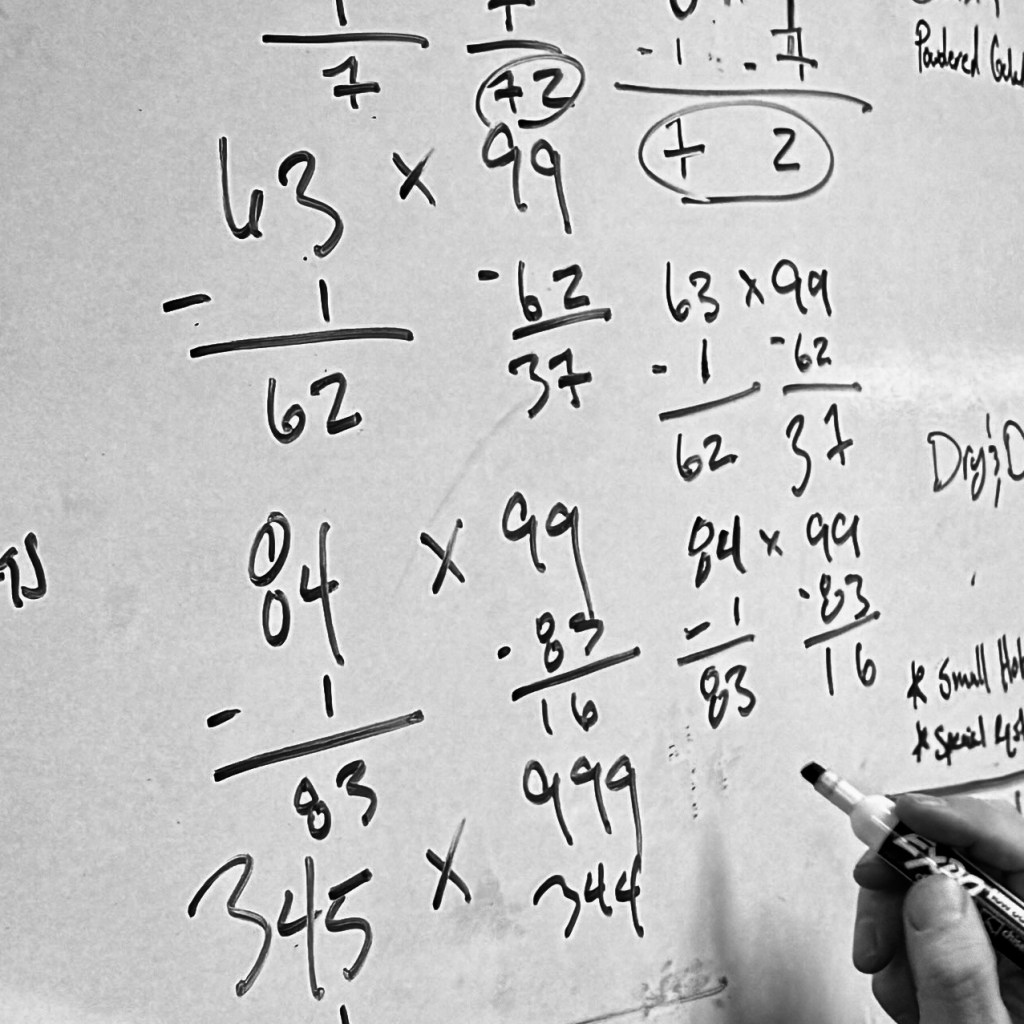 7 72
- 1 . 7
7 2
Powdered
63 × 99
- 1 - 62
62 37
63 × 99
- 1 - 62
62 37
84 × 99
- 1 . 83
83 16
84 × 99
- 1 . 83
83 16
345 × 999
344
* Small
* Special
EXPO